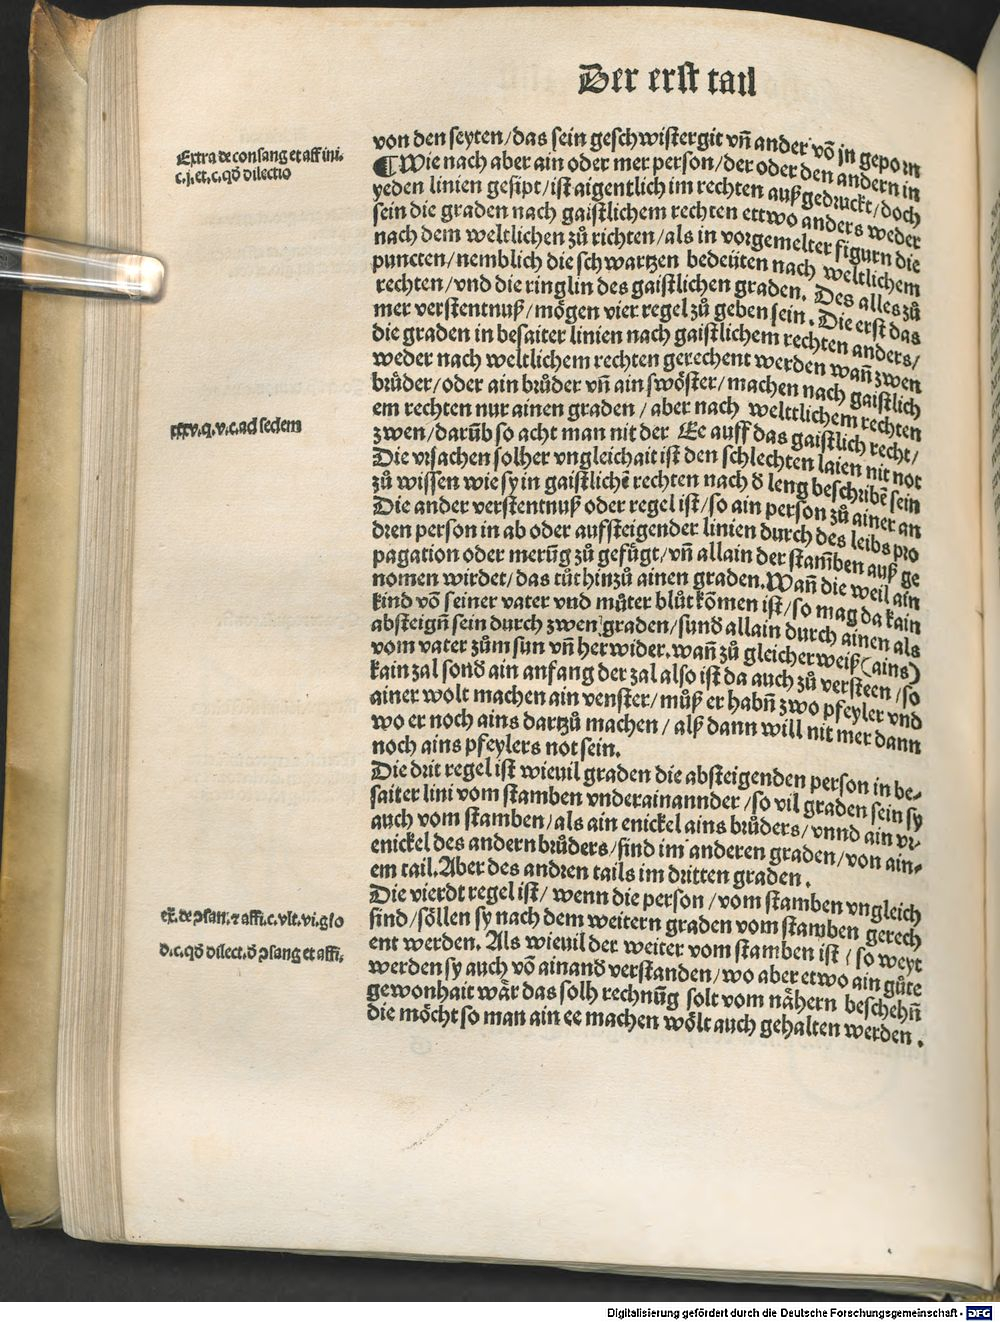 Der erst tail
von den seyten/das sein geschwistergit vñ ander võ jn geporn
¶Wie nach aber ain oder mer person/der oder den andern in
yeden linien gesipt/ist aigentlich im rechten außgedruckt/doch
sein die graden nach gaistlichem rechten ettwo anders weder
nach dem weltlichen zů richten/als in vorgemelter figurn die
puncten/nemblich die schwartzen bedeüten nach weltlichem
rechten/vnd die ringlin des gaistlichen graden. Des alles zů
mer verstentnuß/mögen vier regel zů geben sein. Die erst das
die graden in besaiter linien nach gaistlichem rechten anders/
weder nach weltlichem rechten gerechent werden wañ zwen
brůder/oder ain brůder vñ ain swöster/machen nach gaistlich
em rechten nur ainen graden/aber nach welttlichem rechten
zwen/darũb so acht man nit der Ee auff das gaistlich recht/
Die vrsachen solher vngleichait ist den schlechten laien nit not
zů wissen wie sy in gaistlichẽ rechten nach d̄ leng beschribẽ sein
Die ander verstentnuß oder regel ist/so ain person zů ainer an
dren person in ab oder aufsteigender linien durch des leibs pro
pagation oder merũg zů gefügt/vñ allain der stam̃ben auß ge
nomen wirdet/das tůt hinzů ainen graden. Wañ die weil ain
kind võ seiner vater vnd můter blůt kõmen ist/so mag da kain
absteigñ sein durch zwen graden/sund̄ allain durch ainen als
vom vater zům sun vñ herwider. wañ zů gleicher weiß (ains)
kain zal sond̄ ain anfang der zal also ist da auch zů versteen/so
ainer wolt machen ain venster/můß er habñ zwo pfeyler vnd
wo er noch ains dartzů machen/alß dann will nit mer dann
noch ains pfeylers not sein.
Die drit regel ist wieuil graden die absteigenden person in be-
saiter lini vom stamben vnderainannder/so vil graden sein sy
auch vom stamben/als ain enickel ains brůders/vnnd ain vr-
enickel des andern brůders/sind im anderen graden/von ain-
em tail. Aber des andren tails im dritten graden.
Die vierdt regel ist/wenn die person/vom stamben vngleich
sind/söllen sy nach dem weitern graden vom stamben gerech
ent werden. Als wieuil der weiter vom stamben ist/so weyt
werden sy auch võ ainand̄ verstanden/wo aber etwo ain gůte
gewonhait wär das solh rechnũg solt vom nähern beschehñ
die möcht so man ain ee machen wölt auch gehalten werden.
Extra de consang et affini.
c.j.et.c.qd̄ dilectio
xxxv.q.v.c.ad sedem
ex̄.de ꝯsan.⁊ affi.c.vlt.vi.glo
d.c.qd̄ dilect.d̄ ꝯsang et affi.
Digitalisierung gefördert durch die Deutsche Forschungsgemeinschaft - DFG